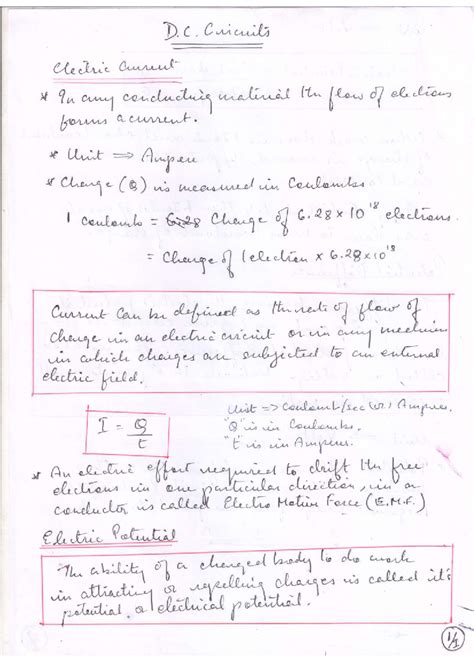 D.C. Circuits
Electric Current
* In any conducting material the flow of electrons
forms a current.
* Unit ⇒ Ampere
* Charge (Q) is measured in Coulombs
1 coulomb = 6.28 Charge of 6.28 × 10^18 electrons.
= Charge of 1 electron × 6.28 × 10^18
Current can be defined as the rate of flow of
charge in an electric circuit or in any medium
in which charges are subjected to an external
electric field.
I = Q/t
Unit ⇒ Coulomb/sec (or) Ampere.
"Q" is in Coulombs.
"t" is in Ampere.
* An electric effort required to drift the free
electrons in one particular direction, in a
conductor is called Electro Motive Force (E.M.F.)
Electric Potential
The ability of a charged body to do work
in attracting or repelling charges is called it's
potential or electrical potential.
1/1